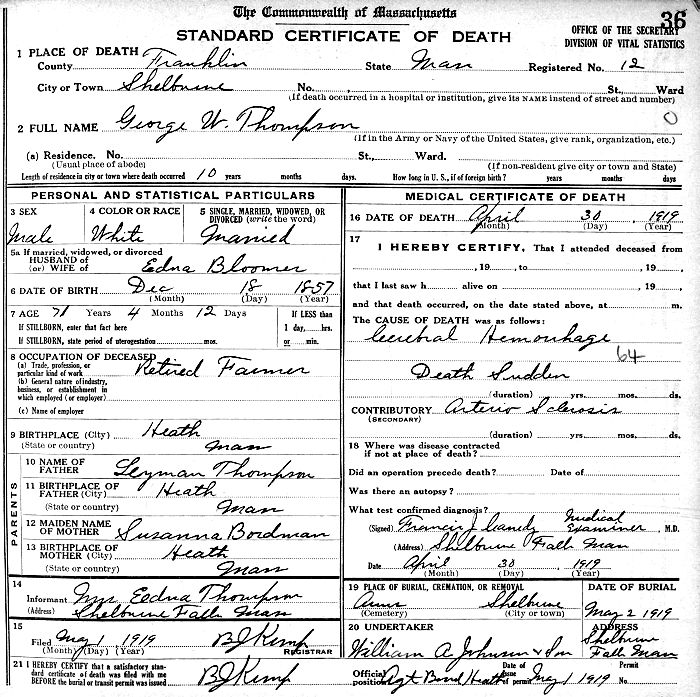 The Commonwealth of Massachusetts
36
STANDARD CERTIFICATE OF DEATH
OFFICE OF THE SECRETARY
DIVISION OF VITAL STATISTICS
1 PLACE OF DEATH
County Franklin State Mass Registered No. 12
City or Town Shelburne No. , St., Ward
(If death occurred in a hospital or institution, give its NAME instead of street and number)
2 FULL NAME George W. Thompson
(If in the Army or Navy of the United States, give rank, organization, etc.)
(a) Residence. No. St., Ward.
(Usual place of abode) (If non-resident give city or town and State)
Length of residence in city or town where death occurred 10 years months days. How long in U. S., if of foreign birth? years months days
PERSONAL AND STATISTICAL PARTICULARS
3 SEX 4 COLOR OR RACE 5 SINGLE, MARRIED, WIDOWED, OR
DIVORCED (write the word)
Male White Married
5a If married, widowed, or divorced
HUSBAND of
(or) WIFE of Edna Bloomer
6 DATE OF BIRTH Dec 18 1857
(Month) (Day) (Year)
7 AGE 71 Years 4 Months 12 Days If LESS than
If STILLBORN, enter that fact here 1 day,....hrs.
If STILLBORN, state period of uterogestation mos. or min.
8 OCCUPATION OF DECEASED
(a) Trade, profession, or
particular kind of work Retired Farmer
(b) General nature of industry,
business, or establishment in
which employed (or employer)
(c) Name of employer
9 BIRTHPLACE (City) Heath
(State or country) Mass
PARENTS
10 NAME OF
FATHER Leyman Thompson
11 BIRTHPLACE OF
FATHER (City) Heath
(State or country) Mass
12 MAIDEN NAME
OF MOTHER Susanna Bordman
13 BIRTHPLACE OF
MOTHER (City) Heath
(State or country) Mass
14
Informant Mrs Eedna Thompson
(Address) Shelburne Falls Mass
15
Filed May 1 1919 BJ Kemp
(Month) (Day) (Year) REGISTRAR
21 I HEREBY CERTIFY that a satisfactory stan-
dard certificate of death was filed with me
BEFORE the burial or transit permit was issued BJ Kemp
MEDICAL CERTIFICATE OF DEATH
16 DATE OF DEATH April 30, 1919
(Month) (Day) (Year)
17
I HEREBY CERTIFY, That I attended deceased from
, 19 , to , 19 ,
that I last saw h alive on , 19 ,
and that death occurred, on the date stated above, at m.
The CAUSE OF DEATH was as follows:
Cerebral Hemorrhage
64
Death Sudden
(duration) yrs. mos. ds.
CONTRIBUTORY Arterio Sclerosis
(SECONDARY)
(duration) yrs. mos. ds.
18 Where was disease contracted
if not at place of death?
Did an operation precede death? Date of
Was there an autopsy?
What test confirmed diagnosis?
(Signed) Francis J Canedy Medical Examiner, M.D.
(Address) Shelburne Falls Mass
Date April 30 1919
(Month) (Day) (Year)
19 PLACE OF BURIAL, CREMATION, OR REMOVAL DATE OF BURIAL
Arms Shelburne May 2 1919
(Cemetery) (City or town)
20 UNDERTAKER ADDRESS
William A Johnson & Son Shelburne Falls Mass
Official position Agt Board Health Date of issue of permit May 1 1919 Permit No.